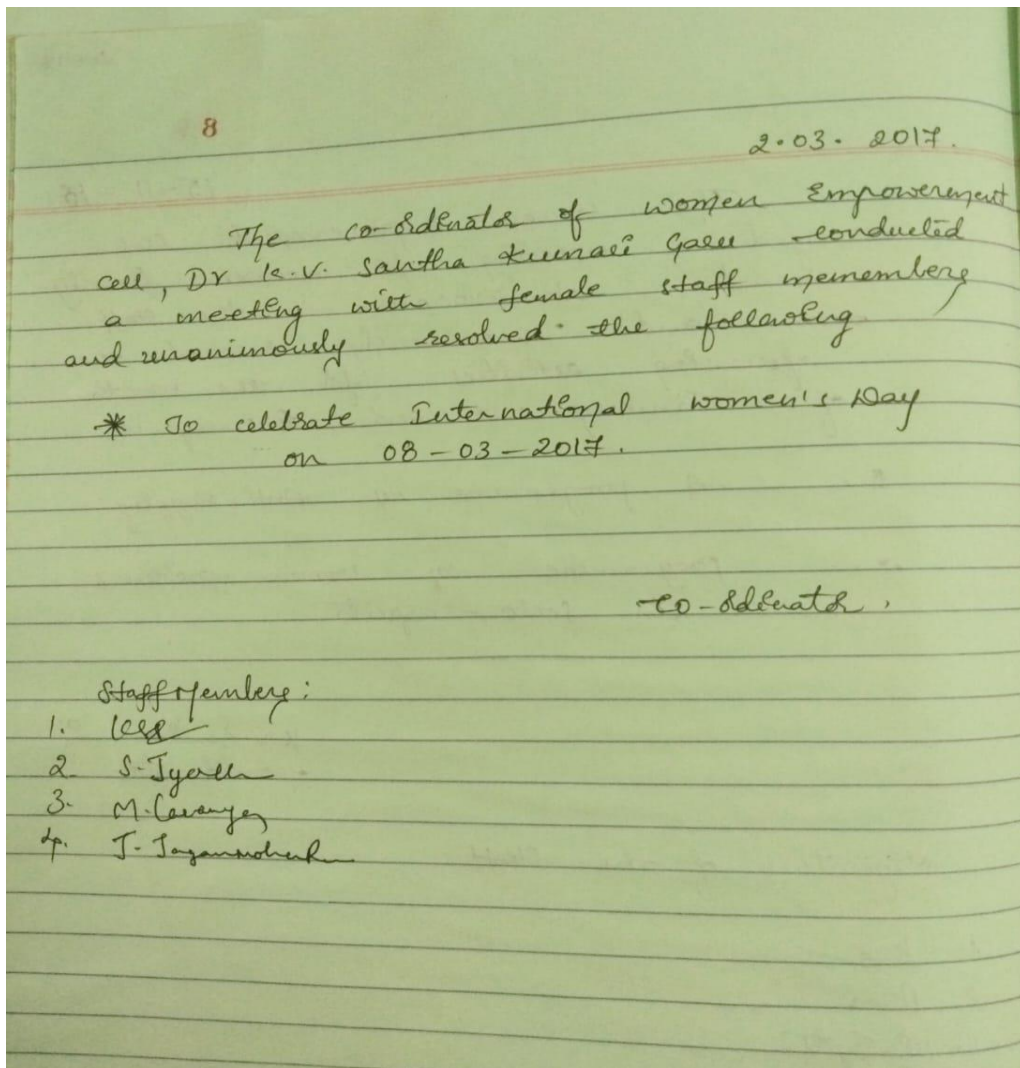 8
2.03.2017.
The co-ordinator of women Empowerement
cell, Dr K.V. Santha Kumari Garu conducted
a meeting with female staff memembers
and unanimously resolved the following
* To celebrate International women's Day
on 08-03-2017.
co-ordinator.
Staff Members:
1.
2. S. Jyothi
3. M. Lavanya
4. J.